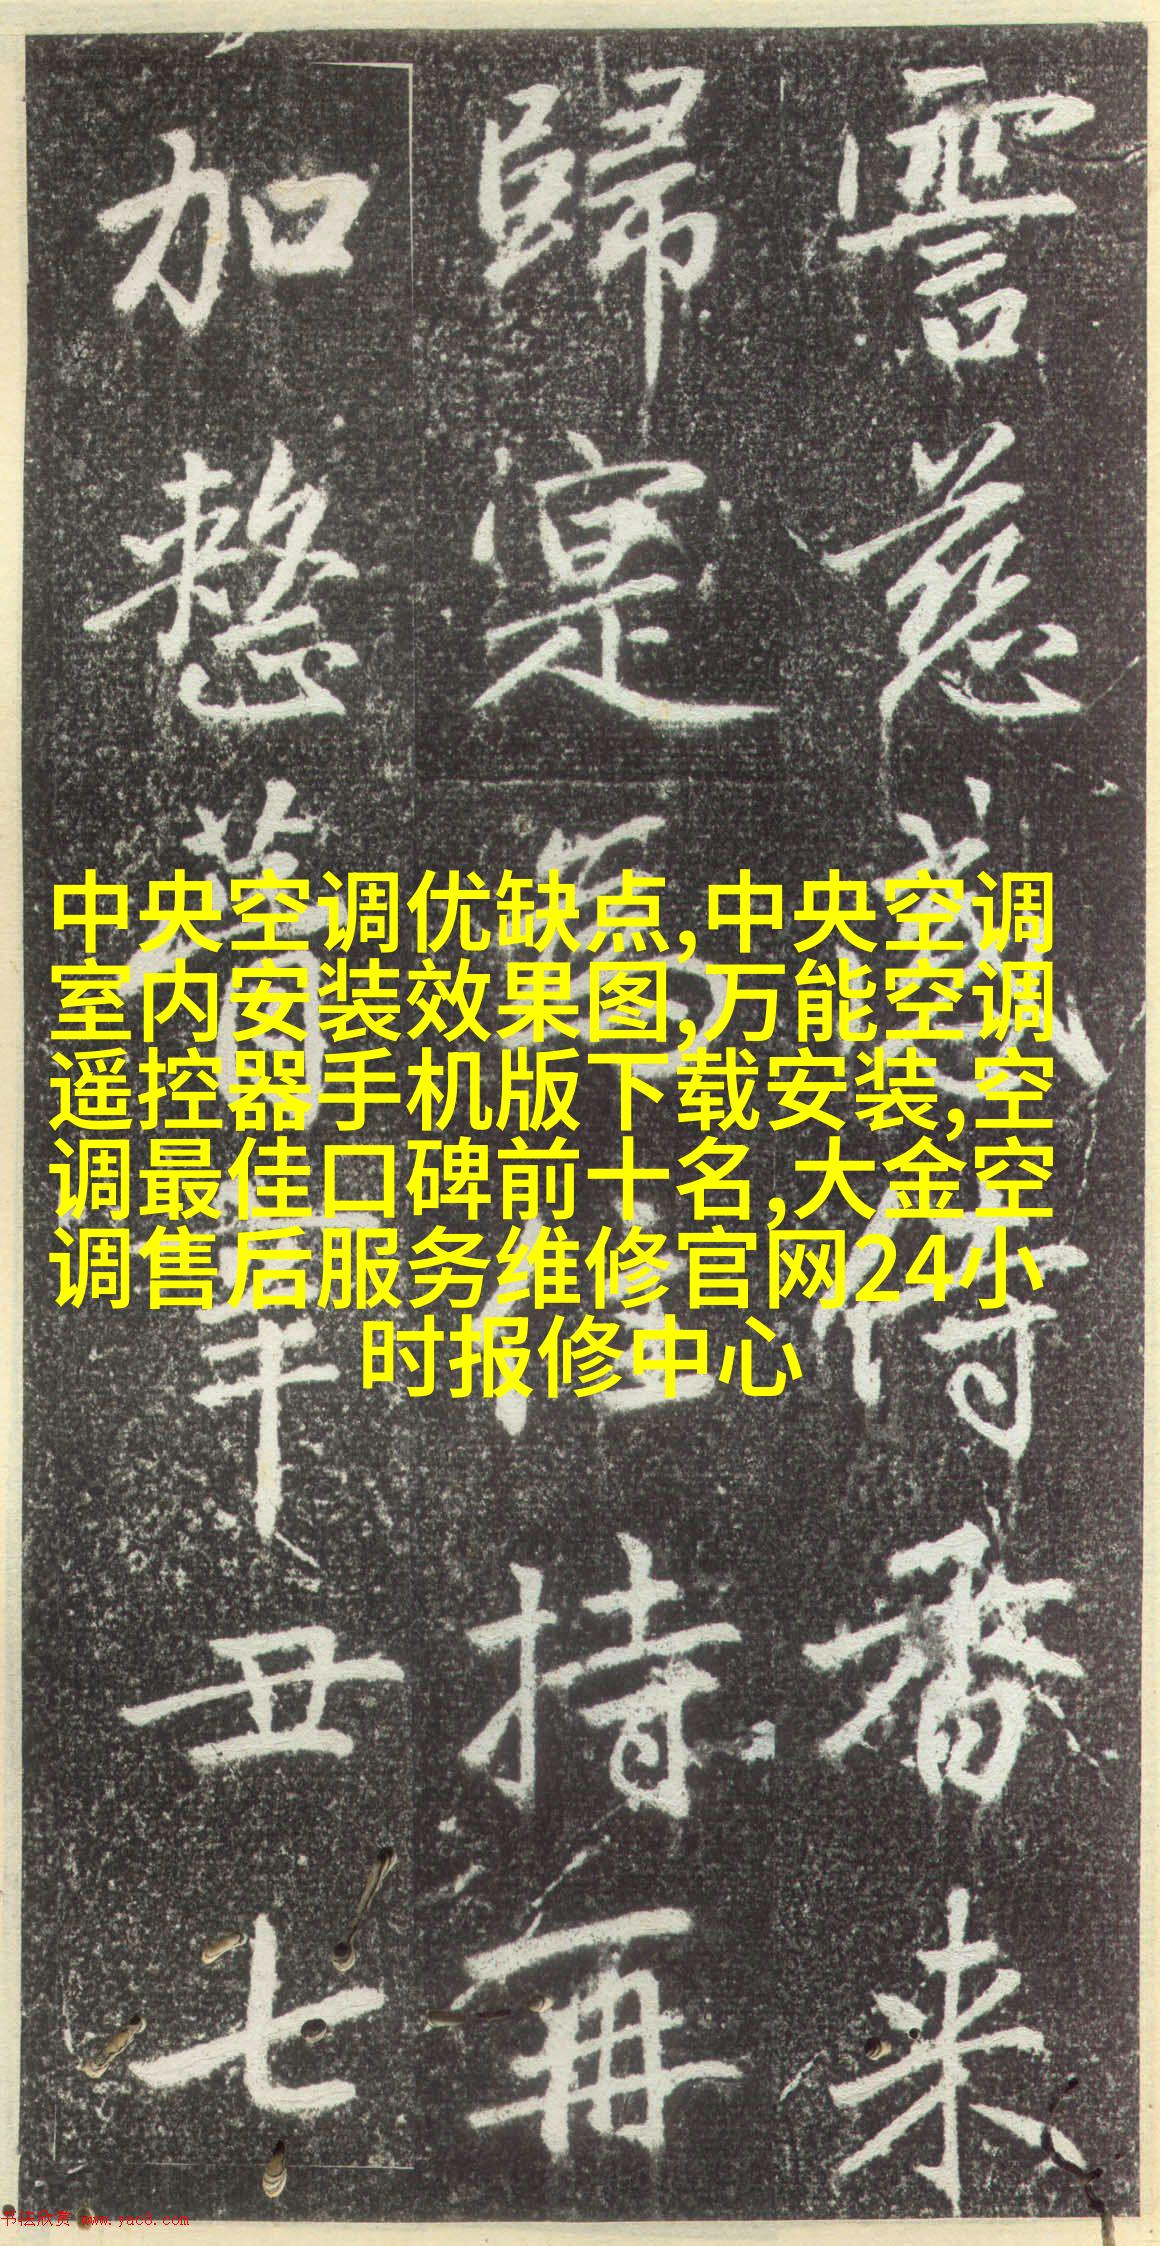 雲慈感恃番来
歸寔為住持再
加整昔年丑七
中央空调优缺点,中央空调
室内安装效果图,万能空调
遥控器手机版下载安装,空
调最佳口碑前十名,大金空
调售后服务维修官网24小
时报修中心
书法欣赏 www.yac8.com